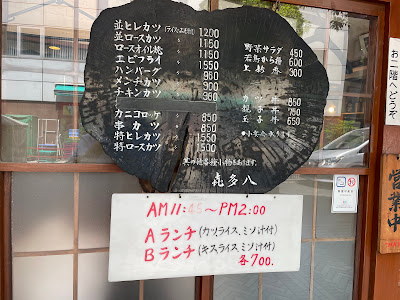 並ヒレカツ (ライス・みそ汁付) 1,200
並ロースカツ 〃 1,150
ロースオイル焼 〃 1,150
エビフライ 〃 1,150
ハンバーグ 〃 960
メンチカツ 〃 900
チキンカツ 〃 960
カニコロッケ 〃 850
串カツ 〃 850
特ヒレカツ 〃 1,550
特ロースカツ 〃 1,500
野菜サラダ 450
若鳥から揚 600
上新香 300
850
親子丼 750
玉子丼 650
喜多八
AM11:45〜PM2:00
Aランチ(カツライス、ミソ汁付)
Bランチ(キスライス、ミソ汁付)
各700.
お二階へどうぞ
営業中